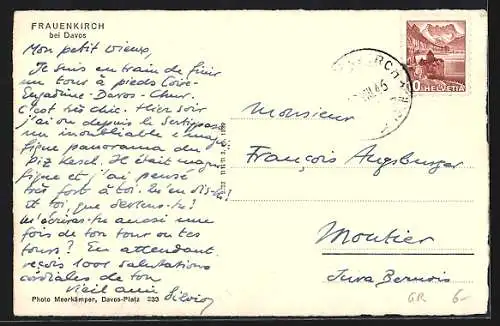 FRAUENKIRCH
bei Davos
Mon petit vieux,
Je suis en train de finir
un tour à pieds Coire-
Engadine-Davos-Chur.
C'est très chic. Hier soir
j'ai eu depuis le Sertigpass
un inoubliable & magni-
fique panorama du
Piz Kesch. Il était magni
fique et j'ai pensé
très fort à toi. Qu'en dis-tu?
et toi, que deviens-tu?
M'écriras-tu aussi une
fois de ton tour ou tes
tours? En attendant
reçois 1001 salutations
cordiales de ton
vieil ami Silvio
Photo Meerkämper, Davos-Platz 230
HELVETIA
Monsieur
François Augsburger
Moutier
Jura Bernois
GR 6.-